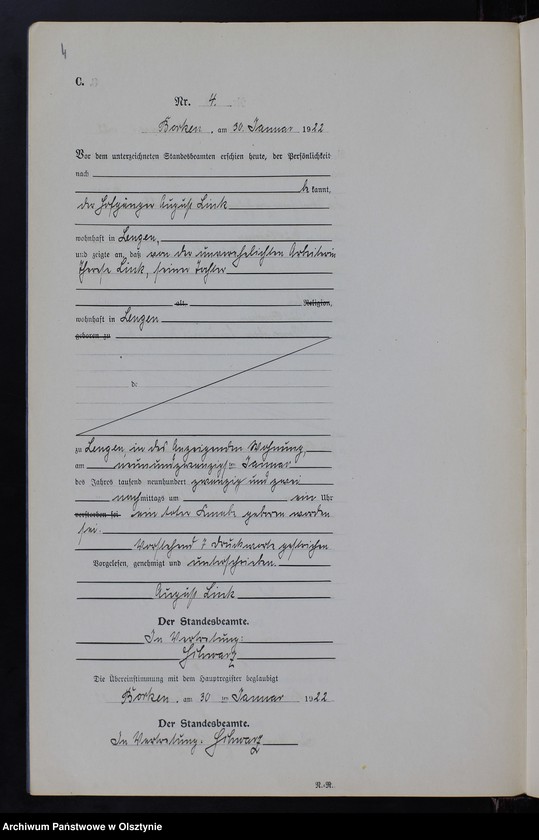 4
C.
Nr. 4.
Borken, am 30 Januar 1922
Vor dem unterzeichneten Standesbeamten erschien heute, der Persönlichkeit
nach
kannt,
der Hofgänger August Link
wohnhaft in Lenzen,
und zeigte an, daß von der unverehelichten Arbeiterin
Therese Link, seiner Tochter
alt, Religion,
wohnhaft in Lenzen
geboren zu
de
zu Lenzen, in des Anzeigenden Wohnung,
am neunundzwanzigsten Januar
des Jahres tausend neunhundert zwanzig und zwei
nachmittags um ein Uhr
verstorben sei ein toter Knabe geboren worden
sei.
Vorstehend 7 Druckworte gestrichen
Vorgelesen, genehmigt und unterschrieben.
August Link
Der Standesbeamte.
In Vertretung:
Schwarz
Die Übereinstimmung mit dem Hauptregister beglaubigt
Borken, am 30 ten Januar 1922
Der Standesbeamte.
In Vertretung: Schwarz
R.-R.
Archiwum Państwowe w Olsztynie